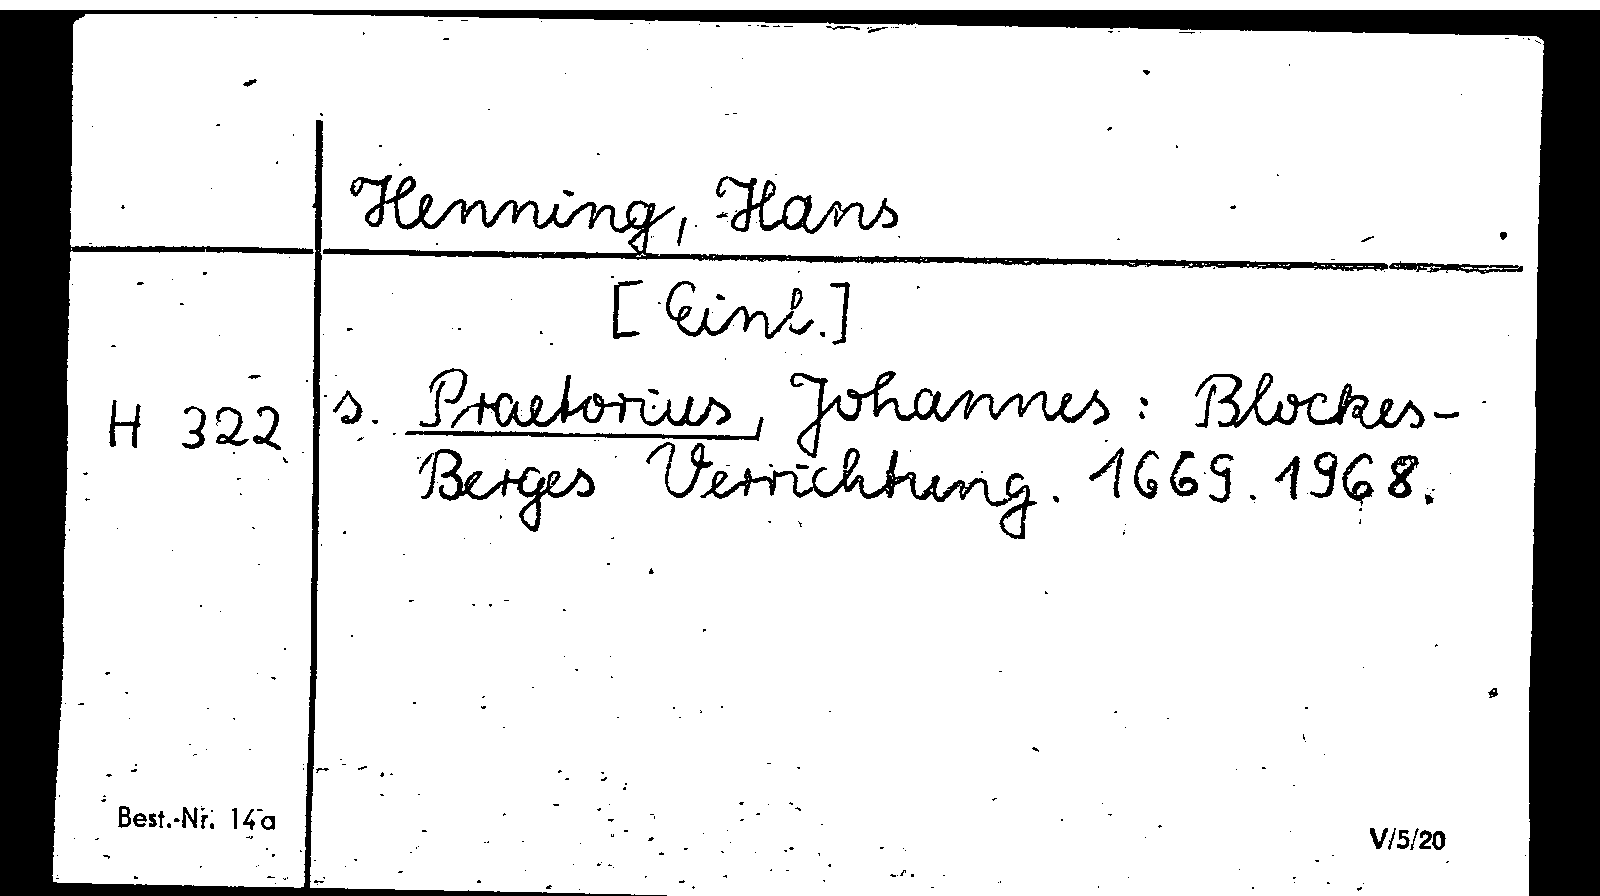 Henning, Hans
[Einl.]
H 322 s. Praetorius, Johannes: Blockes-
Berges Verrichtung. 1669. 1968.
Best.-Nr. 14a
V/5/20